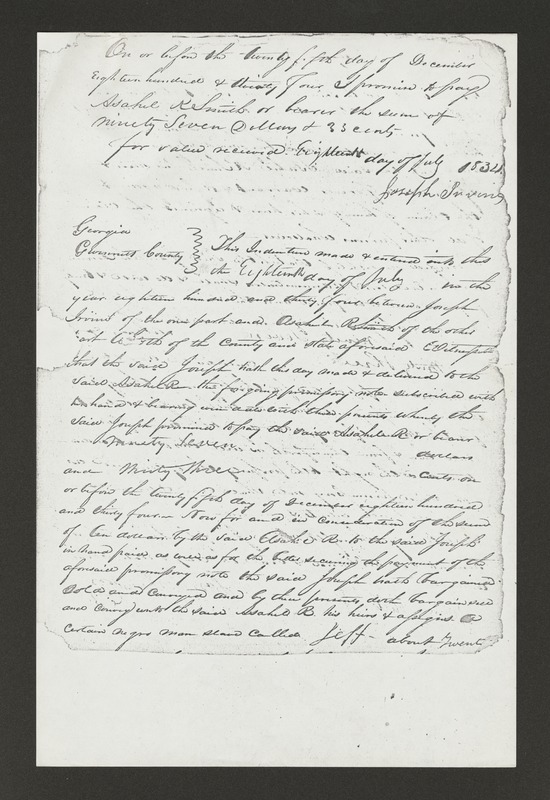 On or before the twenty fifth day of December
Eighteen hundred & thirty four I promise to pay
Asahel R Smith or bearer the sum of
ninety Seven Dollars & 33 cents
for value received. Eighteenth day of July 1834.
Joseph Irvins
Georgia
Gwinnett County
This Indenture made & entered into this
the Eighteenth day of July in the
year eighteen hundred and thirty four between Joseph
Irvins of the one part and Asahel R Smith of the other
part both of the County and State aforesaid Witnesseth
that the said Joseph hath this day made & delivered to the
said Asahel R. the forgoing promissory note subscribed with
his hand & bearing even date with these presents whereby the
said Joseph promised to pay the said Asahel R or bearer
ninety seven dollars
and thirty three cents on
or before the twenty fifth day of December eighteen hundred
and thirty four. Now for and in consideration of the sum
of ten dollars by the said Asahel R. to the said Joseph
in hand paid as well as for the better securing the payment of the
aforsaid promissory note the said Joseph hath bargained
Sold and conveyed and by these presents doth bargain sell
and convey unto the said Asahel R. his heirs & assigns a
certain negro man slave called Jeff - about Twenty